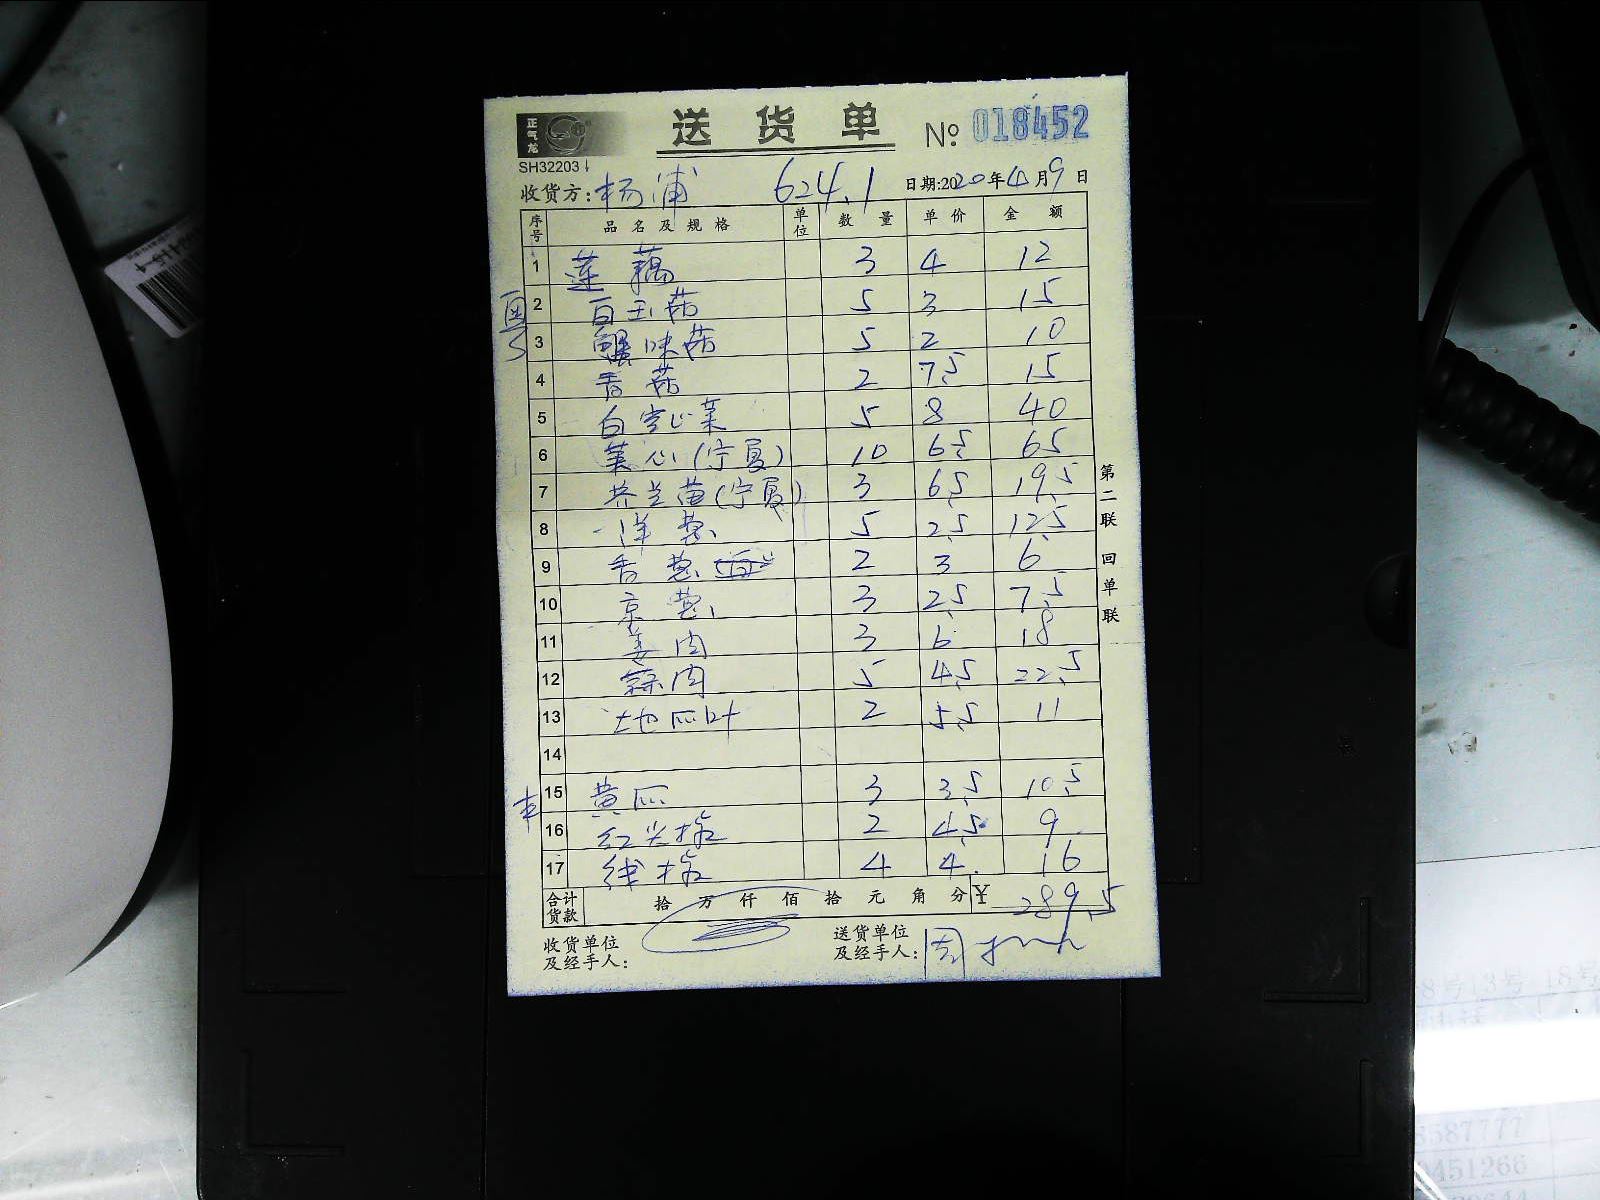 正气龙
送 货 单 № 018452
SH32203
收货方: 杨浦 624.1 日期:2020年4月9日
序号 品名及规格 单位 数量 单价 金额
1 莲藕 3 4 12
粤 2 白玉菇 5 3 15
3 蟹味菇 5 2 10
4 香菇 2 7.5 15
5 白空心菜 5 8 40
6 菜心(宁夏) 10 6.5 65
7 芥兰苗(宁夏) 3 6.5 19.5
8 洋葱 5 2.5 12.5
9 香葱 2 3 6
10 京葱 3 2.5 7.5
11 姜肉 3 6 18
12 蒜肉 5 4.5 22.5
13 地瓜叶 2 5.5 11
14
15 黄瓜 3 3.5 10.5
16 红尖椒 2 4.5 9
17 线椒 4 4 16
合计货款 拾 万 仟 佰 拾 元 角 分 ¥ 289.5
收货单位及经手人:
送货单位及经手人:
第二联 回单联
8号13号 18号
8587777
0451266